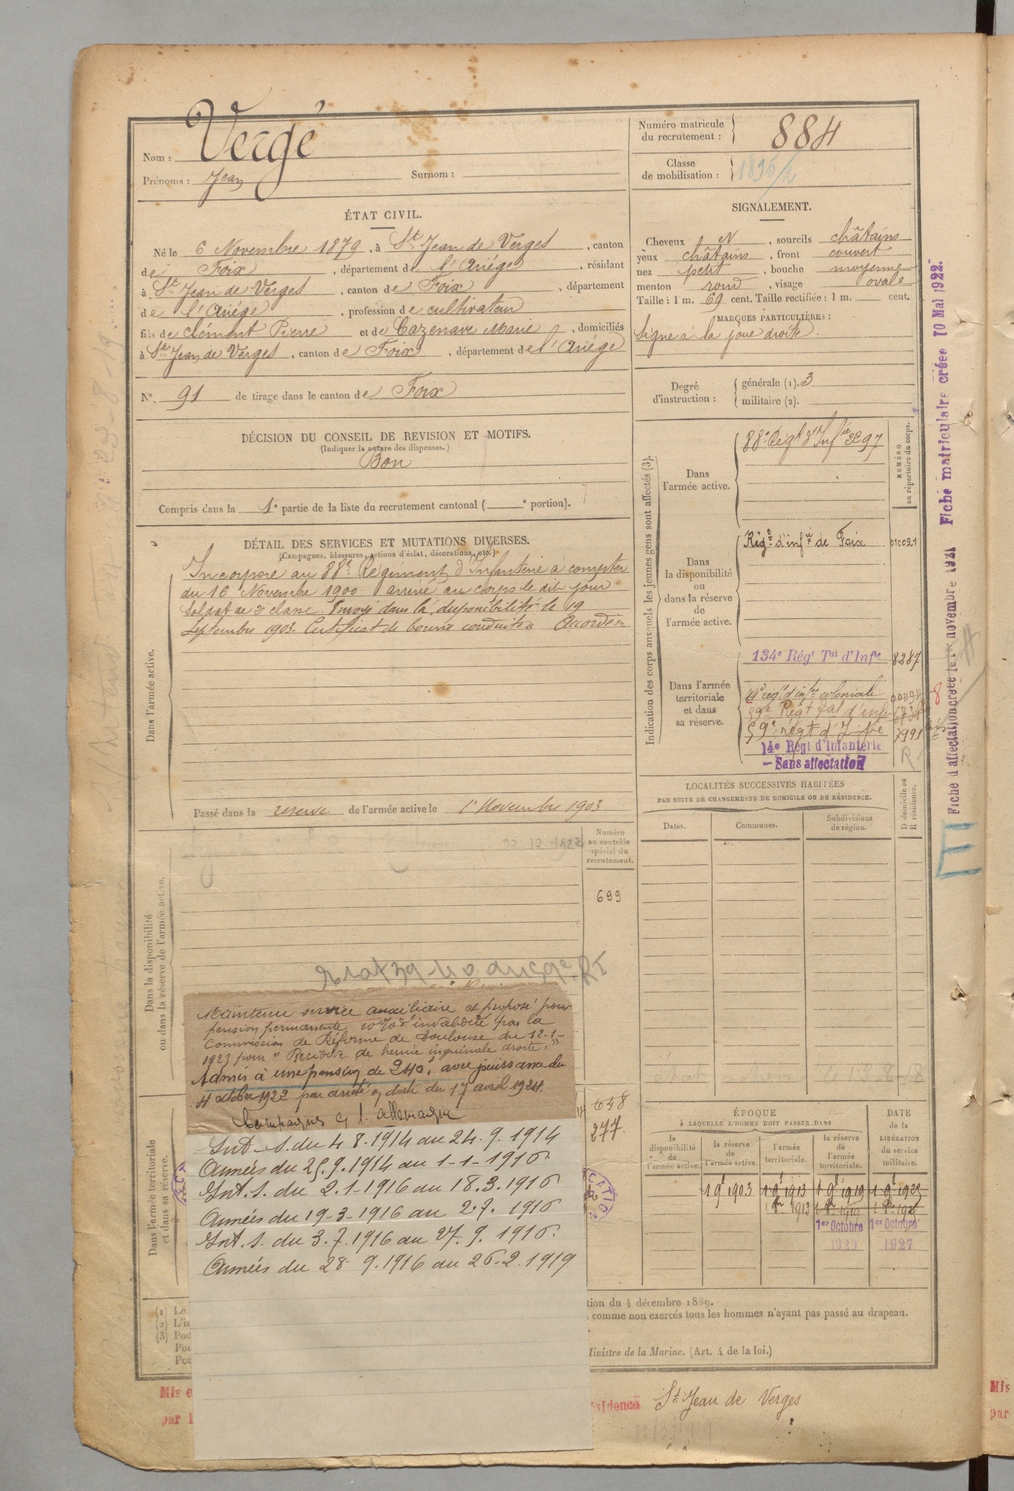 Nom : Vergé
Prénoms : Jean Surnom :
Numéro matricule du recrutement : 884
Classe de mobilisation : 1896/2
ÉTAT CIVIL.
Né le 6 Novembre 1879, à St Jean de Verges, canton
de Foix, département de l'Ariége, résidant
à St Jean de Verges, canton de Foix, département
de l'Ariége, profession de cultivateur
fils de Clément Pierre et de Cazenave Marie, domiciliés
à St Jean de Verges, canton de Foix, département de l'Ariége
N° 91 de tirage dans le canton de Foix
SIGNALEMENT.
Cheveux N, sourcils châtains
yeux châtains, front couvert
nez petit, bouche moyenne
menton rond, visage ovale
Taille : 1 m. 69 cent. Taille rectifiée : 1 m. cent.
MARQUES PARTICULIÈRES :
Signe à la joue droite.
Degré d'instruction : générale (1). 3
militaire (2).
DÉCISION DU CONSEIL DE REVISION ET MOTIFS.
(Indiquer la nature des dispenses.)
Bon
Compris dans la 1e partie de la liste du recrutement cantonal ( e portion).
DÉTAIL DES SERVICES ET MUTATIONS DIVERSES.
(Campagnes, blessures, actions d'éclat, décorations, etc.)
Incorporé au 88e Régiment d'Infanterie à compter
du 16 Novembre 1900 arrivé au corps le dit jour
Soldat de 2e classe. Envoyé dans la disponibilité le 19
Septembre 1903. Certificat de bonne conduite Accordé
Dans l'armée active.
Passé dans la réserve de l'armée active le 1er Novembre 1903
Indication des corps auxquels les jeunes gens sont affectés (3).
NUMÉRO au répertoire du corps.
Dans l'armée active.
88e Régt d'Infie 2297
Dans la disponibilité ou dans la réserve de l'armée active.
Régt d'infie de Foix
Dans l'armée territoriale et dans sa réserve.
134e Régt Tal d'Infie 8287
régt d'infie coloniale
59e régt d'Infie 7991
14e Régt d'Infanterie
— Sans affectation
Fiche matriculaire créée 10 Mai 1922.
LOCALITÉS SUCCESSIVES HABITÉES
PAR SUITE DE CHANGEMENTS DE DOMICILE OU DE RÉSIDENCE.
Dates. Communes. Subdivisions de région. D domicile ou R résidence.
Numéro au contrôle spécial du recrutement.
699
Dans la disponibilité ou dans la réserve de l'armée active.
Maintenu service auxiliaire et proposé pour
pension permanente 10% d'invalidité par la
Commission de Réforme de Toulouse du 12-1-
1923 pour "Récidive de hernie inguinale droite."
Admis à une pension de 240f avec jouissance du
4 octobre 1922 par arrêté en date du 17 avril 1924
Campagnes c/ l'Allemagne
648
277
Int. S. du 4 8.1914 au 24.9.1914
Armées du 25.9.1914 au 1-1-1916
Int. S. du 2.1-1916 au 18.3.1916
Armées du 19-3-1916 au 2.7.1916
Int. S. du 3.7.1916 au 27.9.1916.
Armées du 28.9.1916 au 26.2.1919
Dans l'armée territoriale et dans sa réserve.
ÉPOQUE
À LAQUELLE L'HOMME DOIT PASSER DANS
la disponibilité de l'armée active. la réserve de l'armée active. l'armée territoriale. la réserve de l'armée territoriale.
DATE de la LIBÉRATION du service militaire.
1 9bre 1903 1 9bre 1913 1 9bre 1919 1 9bre 1925
1er Octobre 1er Octobre
1920 1927
(1) Le
(2) L'in
(3) Pou
Pou
Pou
tion du 4 décembre 1889.
comme non exercés tous les hommes n'ayant pas passé au drapeau.
Ministre de la Marine. (Art. 4 de la loi.)
Mis e
par l
sidence St Jean de Verges
Mis
par